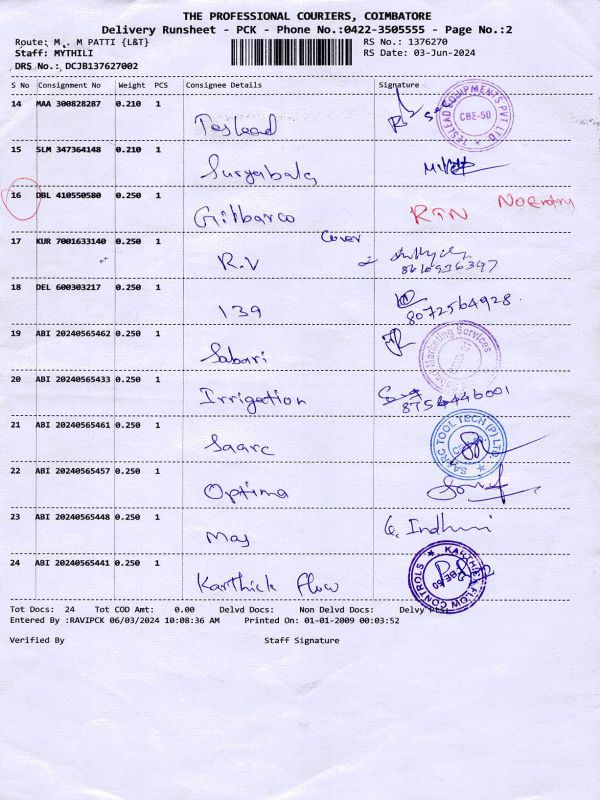 THE PROFESSIONAL COURIERS, COIMBATORE
Delivery Runsheet - PCK - Phone No.:0422-3505555 - Page No.:2
Route: M. M PATTI {L&T} RS No.: 1376270
Staff: MYTHILI RS Date: 03-Jun-2024
DRS No.: DCJB137627002
S No Consignment No Weight PCS Consignee Details Signature
14 MAA 300828287 0.210 1 Teslead TESLEAD EQUIPMENTS PVT LTD CBE-50
15 SLM 347364148 0.210 1 Suryabala
16 DBL 410550580 0.250 1 Gilbarco RTN
17 KUR 7001633140 0.250 1 R.V Cover
18 DEL 600303217 0.250 1 139 8072564928
19 ABI 20240565462 0.250 1 Sabari Marketing Services
20 ABI 20240565433 0.250 1 Irrigation 8754446001
21 ABI 20240565461 0.250 1 Saarc SAARC TOOL TECH (P) LTD.
22 ABI 20240565457 0.250 1 Optima
23 ABI 20240565448 0.250 1 Mas G. Indhu
24 ABI 20240565441 0.250 1 Karthick Flow KARTHICK FLOW CONTROLS CBE-50
Tot Docs: 24 Tot COD Amt: 0.00 Delvd Docs: Non Delvd Docs: Delvy
Entered By :RAVIPCK 06/03/2024 10:08:36 AM Printed On: 01-01-2009 00:03:52
Verified By Staff Signature